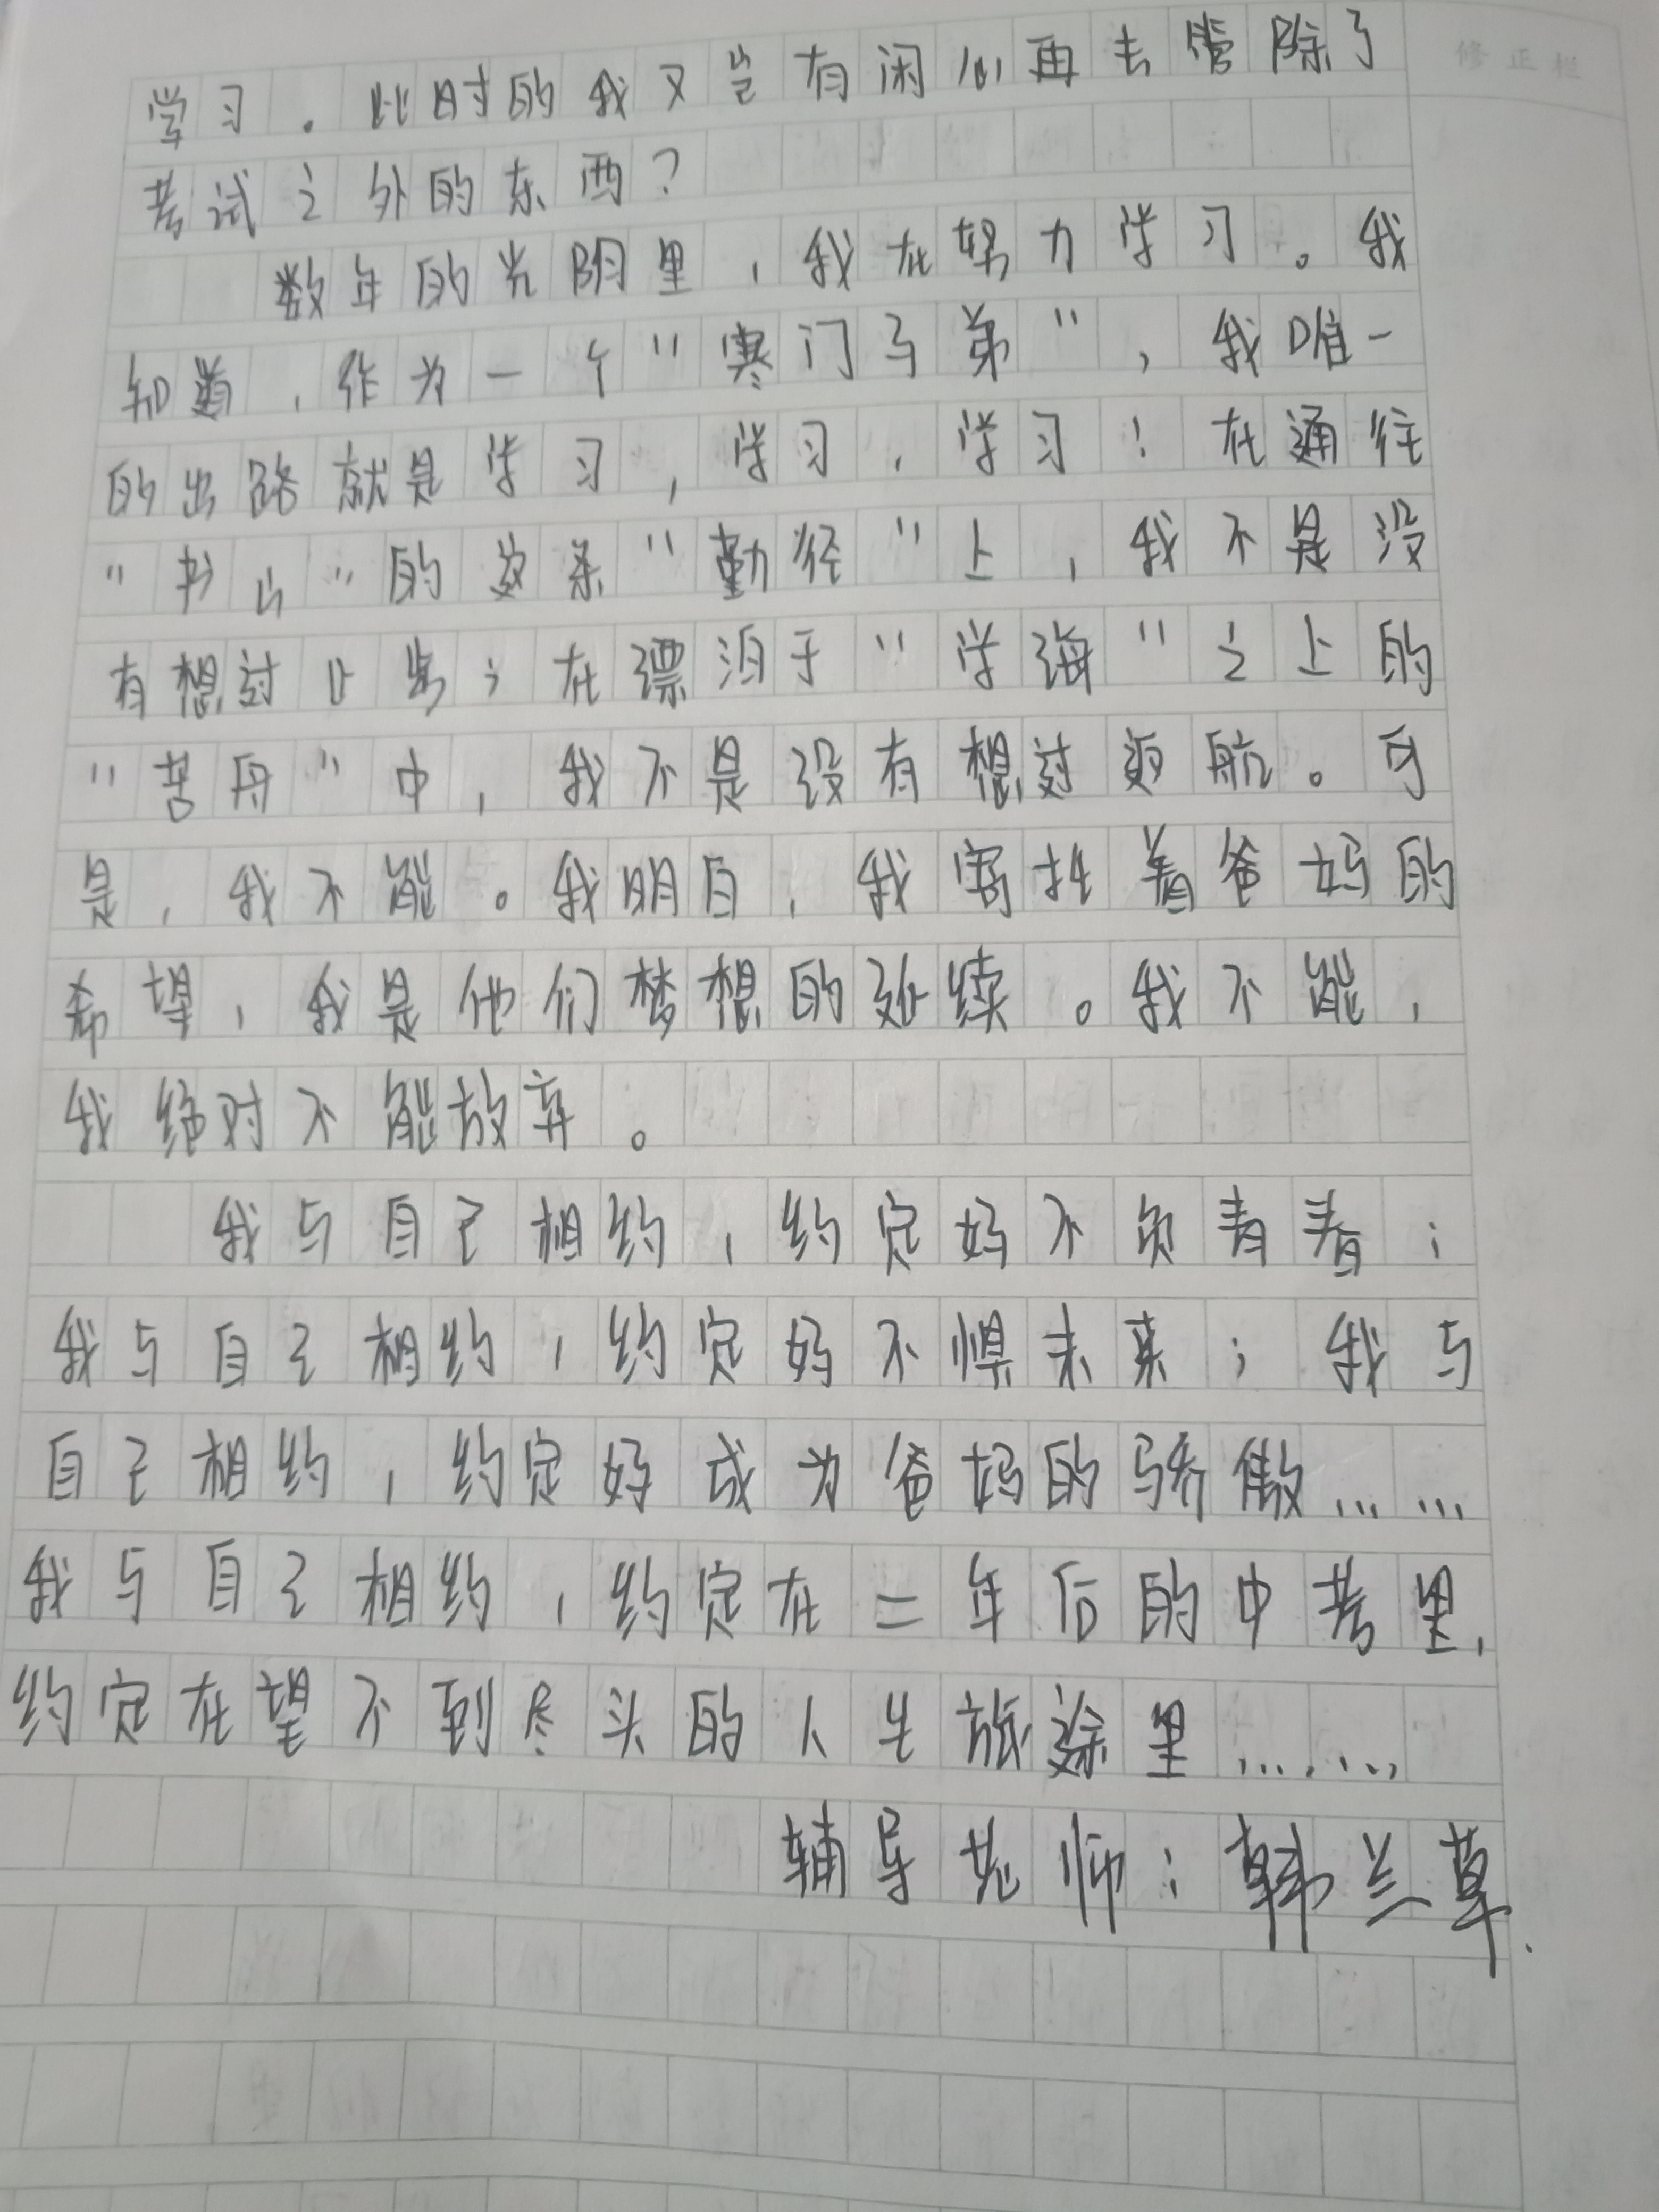 修正栏
学习。此时的我又岂有闲心再去管除了
考试之外的东西?
数年的光阴里,我在努力学习。我
知道,作为一个"寒门子弟",我唯一
的出路就是学习,学习,学习!在通往
"书山"的这条"勤径"上,我不是没
有想过止步;在漂泊于"学海"之上的
"苦舟"中,我不是没有想过返航。可
是,我不能。我明白,我寄托着爸妈的
希望,我是他们梦想的延续。我不能,
我绝对不能放弃。
我与自己相约,约定好不负青春;
我与自己相约,约定好不惧未来;我与
自己相约,约定好成为爸妈的骄傲……
我与自己相约,约定在二年后的中考里,
约定在望不到尽头的人生旅途里……
辅导老师:韩兰草.